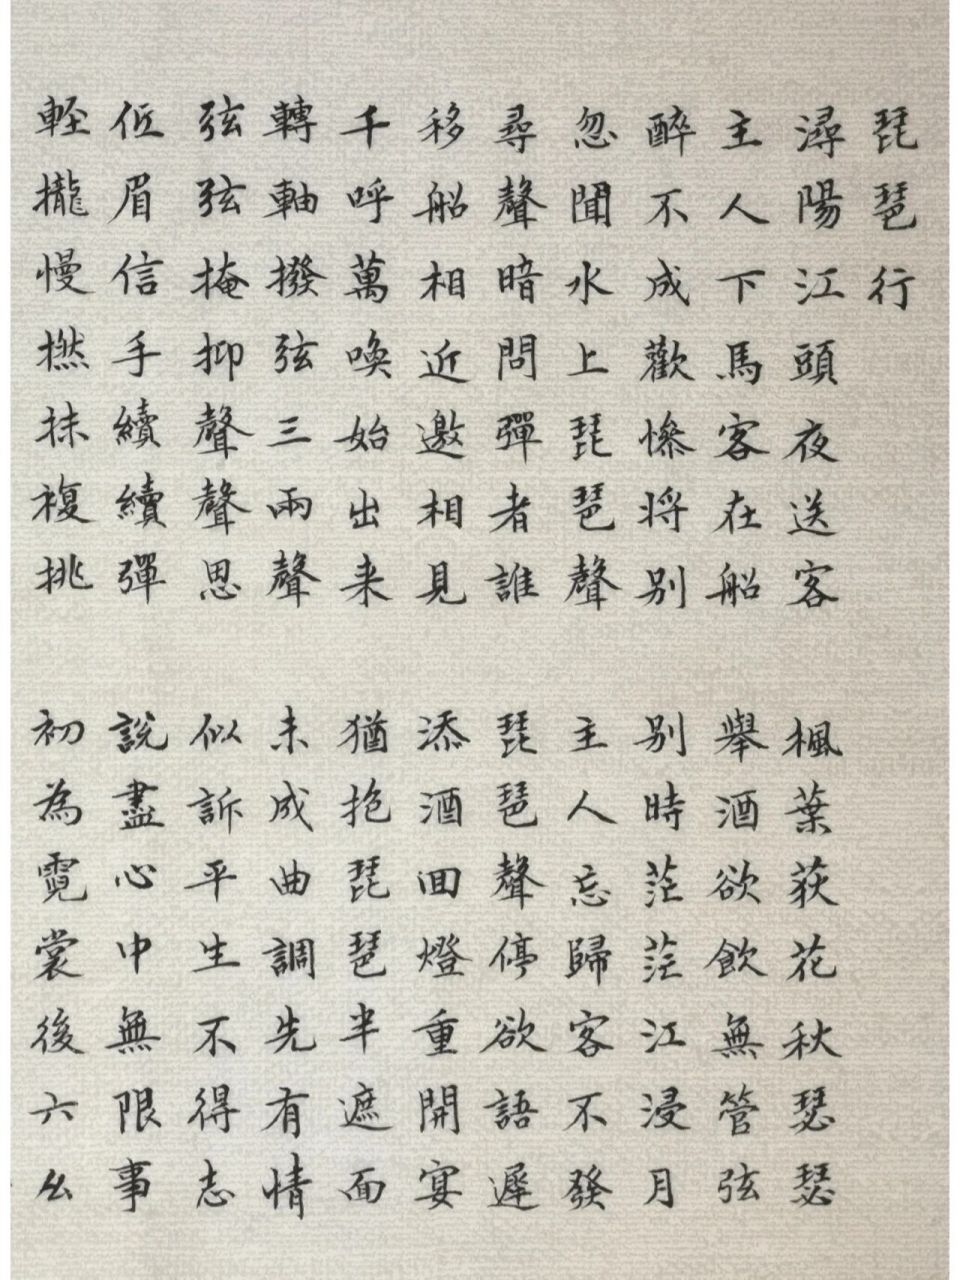 琵琶行
潯陽江頭夜送客 楓葉荻花秋瑟瑟
主人下馬客在船 舉酒欲飲無管弦
醉不成歡慘将别 别時茫茫江浸月
忽聞水上琵琶聲 主人忘歸客不發
尋聲暗問彈者誰 琵琶聲停欲語遲
移船相近邀相見 添酒回燈重開宴
千呼萬喚始出来 猶抱琵琶半遮面
轉軸撥弦三兩聲 未成曲調先有情
弦弦掩抑聲聲思 似訴平生不得志
低眉信手續續彈 說盡心中無限事
輕攏慢撚抹複挑 初為霓裳後六幺